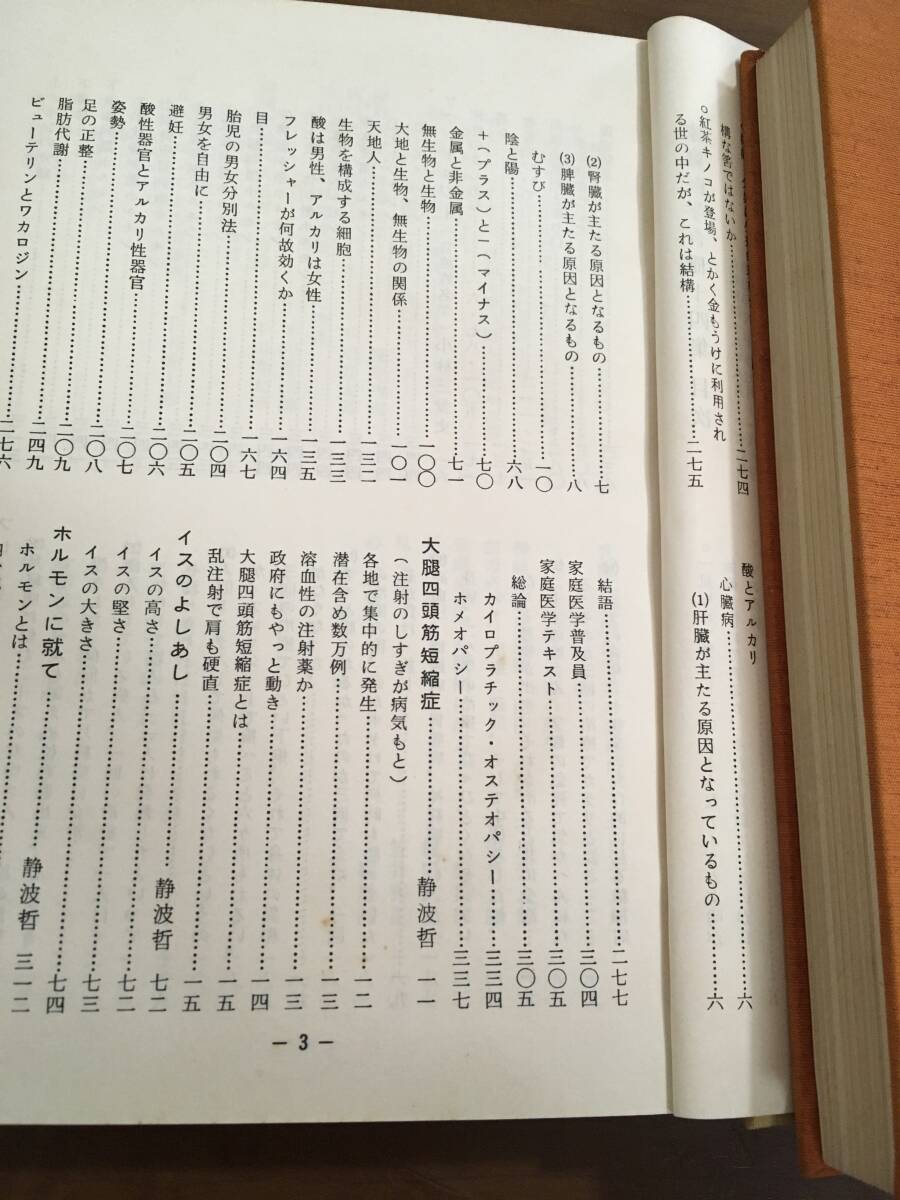 構な筈ではないか……………………二七四
○紅茶キノコが登場、とかく金もうけに利用され
る世の中だが、これは結構……………二七五
酸とアルカリ
心臓病……………………六
(1)肝臓が主たる原因となっているもの…………六
(2)腎臓が主たる原因となるもの…………七
(3)脾臓が主たる原因となるもの…………八
むすび……………………一〇
陰と陽……………………六八
＋(プラス)と－(マイナス)…………七〇
金属と非金属……………………七一
無生物と生物……………………一〇〇
大地と生物、無生物の関係…………一〇一
天地人……………………一三二
生物を構成する細胞…………一三三
酸は男性、アルカリは女性…………一三五
フレッシャーが何故効くか…………一六四
目……………………一六七
胎児の男女分別法…………二〇四
男女を自由に……………………二〇五
避妊……………………二〇五
酸性器官とアルカリ性器官…………二〇六
姿勢……………………二〇七
足の正整……………………二〇八
脂肪代謝……………………二〇九
ビューテリンとワカロジン…………二四九
二七六
結語……………………二七七
家庭医学普及員……………………三〇四
家庭医学テキスト……………………三〇五
総論……………………三〇五
カイロプラチック・オステオパシー…………三三四
ホメオパシー……………………三三七
大腿四頭筋短縮症…………静波哲 一一
(注射のしすぎが病気もと)
各地で集中的に発生…………一二
潜在含め数万例…………一三
溶血性の注射薬か…………一三
政府にもやっと動き…………一四
大腿四頭筋短縮症とは…………一五
乱注射で肩も硬直…………一五
イスのよしあし…………静波哲 七二
イスの高さ……………………七二
イスの堅さ……………………七二
イスの大きさ……………………七三
ホルモンに就て…………静波哲 七四
ホルモンとは……………………三一二
― 3 ―